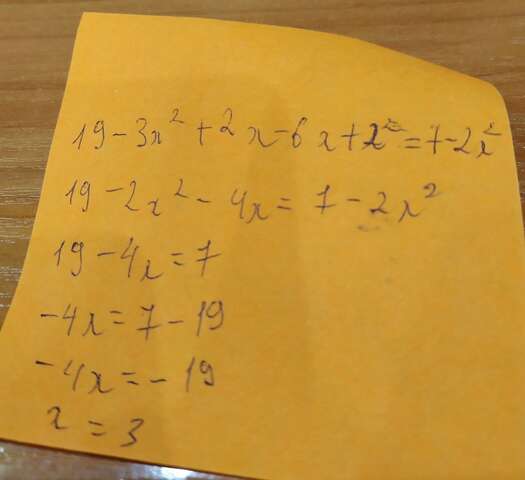 19-3x²+2x-6x+x²=7-2x²
19-2x²-4x=7-2x²
19-4x=7
-4x=7-19
-4x=-19
x=3